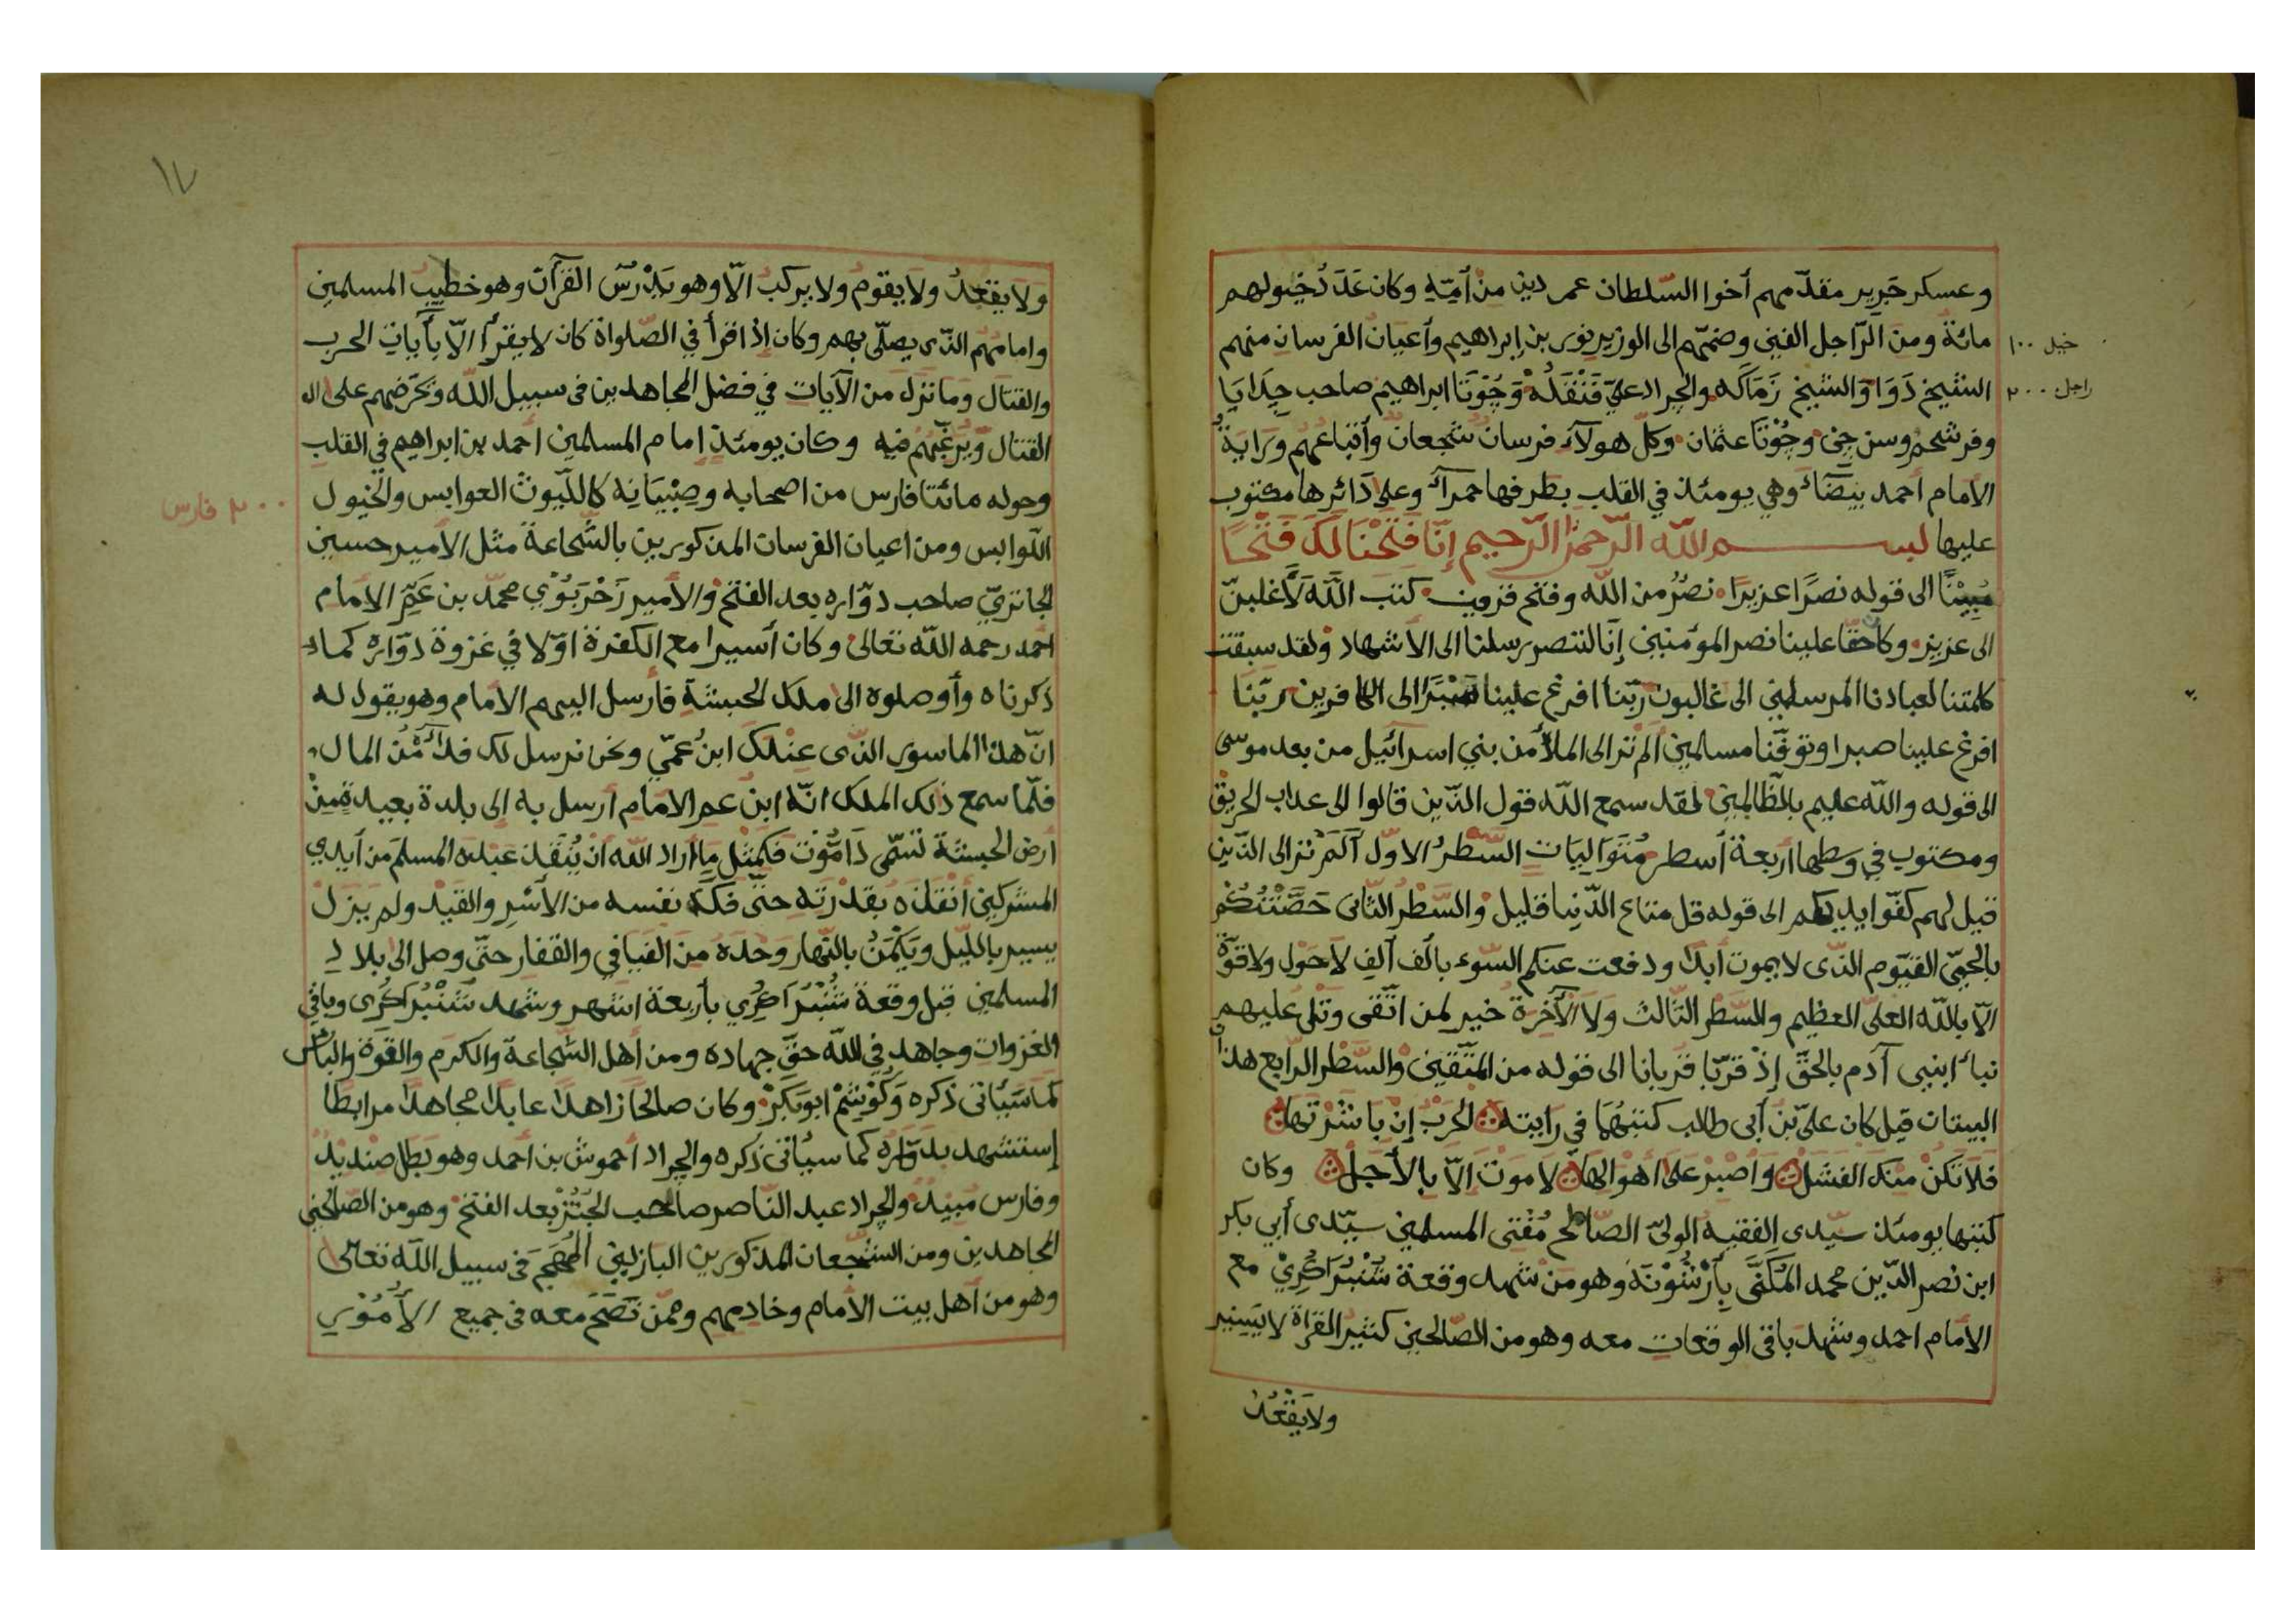 وعسكر جرير مقدّمهم أخوا السّلطان عمر دين من أمّه وكان عَدَدُ خيولهم
مائة ومن الرّاجل الفين وضمّهم الى الوزير نور بن إبراهيم وأعيان الفرسان منهم
خيل ١٠٠
الشيخ دَوَا وَالشيخ زَمَاكَه والجراد عليّ فَنْقَلُهْ وَجُوْتَا ابراهيم صاحب جِدَايَا
راجل ٢٠٠٠
وفرشحم وسن جِىْ وجُوْتَا عثمان وكلّ هولآء فرسان شجعان وأتباعهم وَرَايَةُ
الأمام أحمد بيضَآءُ وهي يومئذ في القلب بطرفها حمرآء وعلى دَائرها مكتوب
عليها بسم اللّه الرّحمن الرّحيم إنّا فَتَحْنَا لَكَ فَتْحًا
مُبِيْنًا الى قوله نصرًا عزيزًا نصرٌ من اللّه وفتح قريب كتب اللّه لَأَغلبنّ
الى عزيز وكا حقّا علينا نصر المؤمنين إنّا لننصر رسلنا الى الأشهاد ولقد سبقت
كلمتنا لعبادنا المرسلين الى غالبون ربّنا افرغ علينا صَبْرًا الى الكافرين ربّنا
افرغ علينا صبرا وتوفّنا مسلمين ألم تر الى الملأ من بني اسرآئيل من بعد موسى
الى قوله واللّه عليم بالظّالمين لقد سمع اللّه قول الذّين قالوا الى عداب الحريق
ومكتوب في وسطها أربعة أسطر مُتَوَاليَات السَّطرُ الاوّل آلَمْ تر الى الذّين
قيل لهم كفّوا يديكم الى قوله قل متاع الدّنيا قليل والسَّطْر الثّانى حَصَّنْتُكُمْ
بالحيّ القيّوم الذّى لا يموت أبدًا ودفعت عنكم السّوء بألف ألفِ لا حَول ولا قوّة
الّا باللّه العلىّ العظيم والسّطْر الثّالث وَلاَ الآخرة خير لمن اتّقى وتلى عليهم
نبأ ابنيى آدم بالحقّ إذْ قرّبا قربانا الى قوله من المتّقين والسَّطْر الرّابع هذا
البيتان قيل كان علىّ بْنُ أبى طالب كتبَهُمَا في رايته الحَرْبُ إنْ بَاشَرْتَها
فَلاَ تَكنْ منكَ الفَشَلْ وَاصْبِرْ عَلَى أَهْوَالِهَا لاَ مَوْتَ إلاّ بِالأَجَلْ وكان
كتبها يومئذ سيّدى الفقيه الولىّ الصّالح مُفْتى المسلمين سيّدى أبي بكر
ابن نصر الدّين محمد المكَنَّى بِأَرْشُوْنَهْ وهو من شهد وقعة شُنْبُرَا كُرِيْ مع
الأمام احمد وشهد باقى الوقعات معه وهو من الصّالحين كثير القرَاة لا يسير
ولا يَقْعُد
١٧
ولا يقعد ولا يقوم ولا يركب الّا وهو يَدْرُسُ القرآن وهو خطيب المسلمين
وامامهُم الذّى يصلّى بهم وكان إذا قرأ في الصّلواة كان لا يقرأ الّا بأيات الحرب
والقتَال وَما نزل من الآيات في فضل المجاهدين فى سبيل اللّه وَيُحرّضهم على ال
القتال وَيُرغّبهُم فيه وكان يومئذٍ إمام المسلمين أحمد بن ابراهيم في القلب
وحوله مائتا فارس من اصحابه وصِبْيَانِهِ كاللّيوث العوابس والخيول
٢٠٠ فارس
اللّوابس ومن اعيان الفرسان المذكورين بالشّجاعة مثل الأمير حسين
الجاتريّ صاحب دوّاره بعد الفتح والأمير زَحْرَبُوْيْ محمّد بن عَمِّ الأمام
احمد رحمه اللّه تعالى وكان أسيرا مع الكفرة اوّلا في غزوة دوّاره كماء
ذكرناه وأوصلوه الى ملك الحبشة فأرسل اليهم الأمام وهو يقول له
انّ هذا الماسور الذّى عِنْدك ابنُ عمّي ونحن نرسل لك فدآئَهُ من المال
فلمّا سمع ذلك الملك انّه ابن عم الأمام أرسل به الى بلدة بعيدة من
أرض الحبشة تسَمّى دَامُوْت فكمثل ما أراد اللّه ان يُنْقذ عبده المسلم من أيدي
المشركين أنقذه بقدْرَته حتّى فكّ نفسه من الأسْرِ والقيْد ولم يزلْ
يسير باللّيل ويَكْمُنُ بالنّهار وَحْدَهُ من الفيافي والقفار حتّى وصل الى بلاد
المسلمين قبل وقعة شُنْبُرَا كُرِي بأربعة اشهر وشهد شَنْبُرَا كُرى وباقى
الغزوات وجاهد فى اللّه حقّ جهاده ومن أهل الشّجاعة والكرم والقوّة والبأس
كمَا سَيَأتى ذكره وَكُوْشَمْ ابوبَكَرْ وكان صالحًا زاهدًا عابدًا مجاهدًا مرابطًا
إستشهد بدوّارُه كما سيأتى ذكره والجراد أحموش بن أحمد وهو بَطَل صنديْدٌ
وفارس مُبِيْدٌ والجراد عبد النّاصر صاحب الجَنْزْ بعد الفتح وهو من الصّالحين
المجاهدين ومن الشّجعان المذكورين الباذلين المهَجَ فى سبيل اللّه تعالى
وهو من أهل بيت الأمام وخادمهم وممّن نَصَحَ معه فى جميع الأُمُوْر